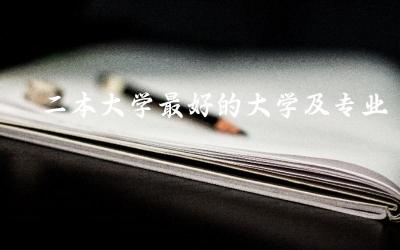 二本大学最好的大学及专业